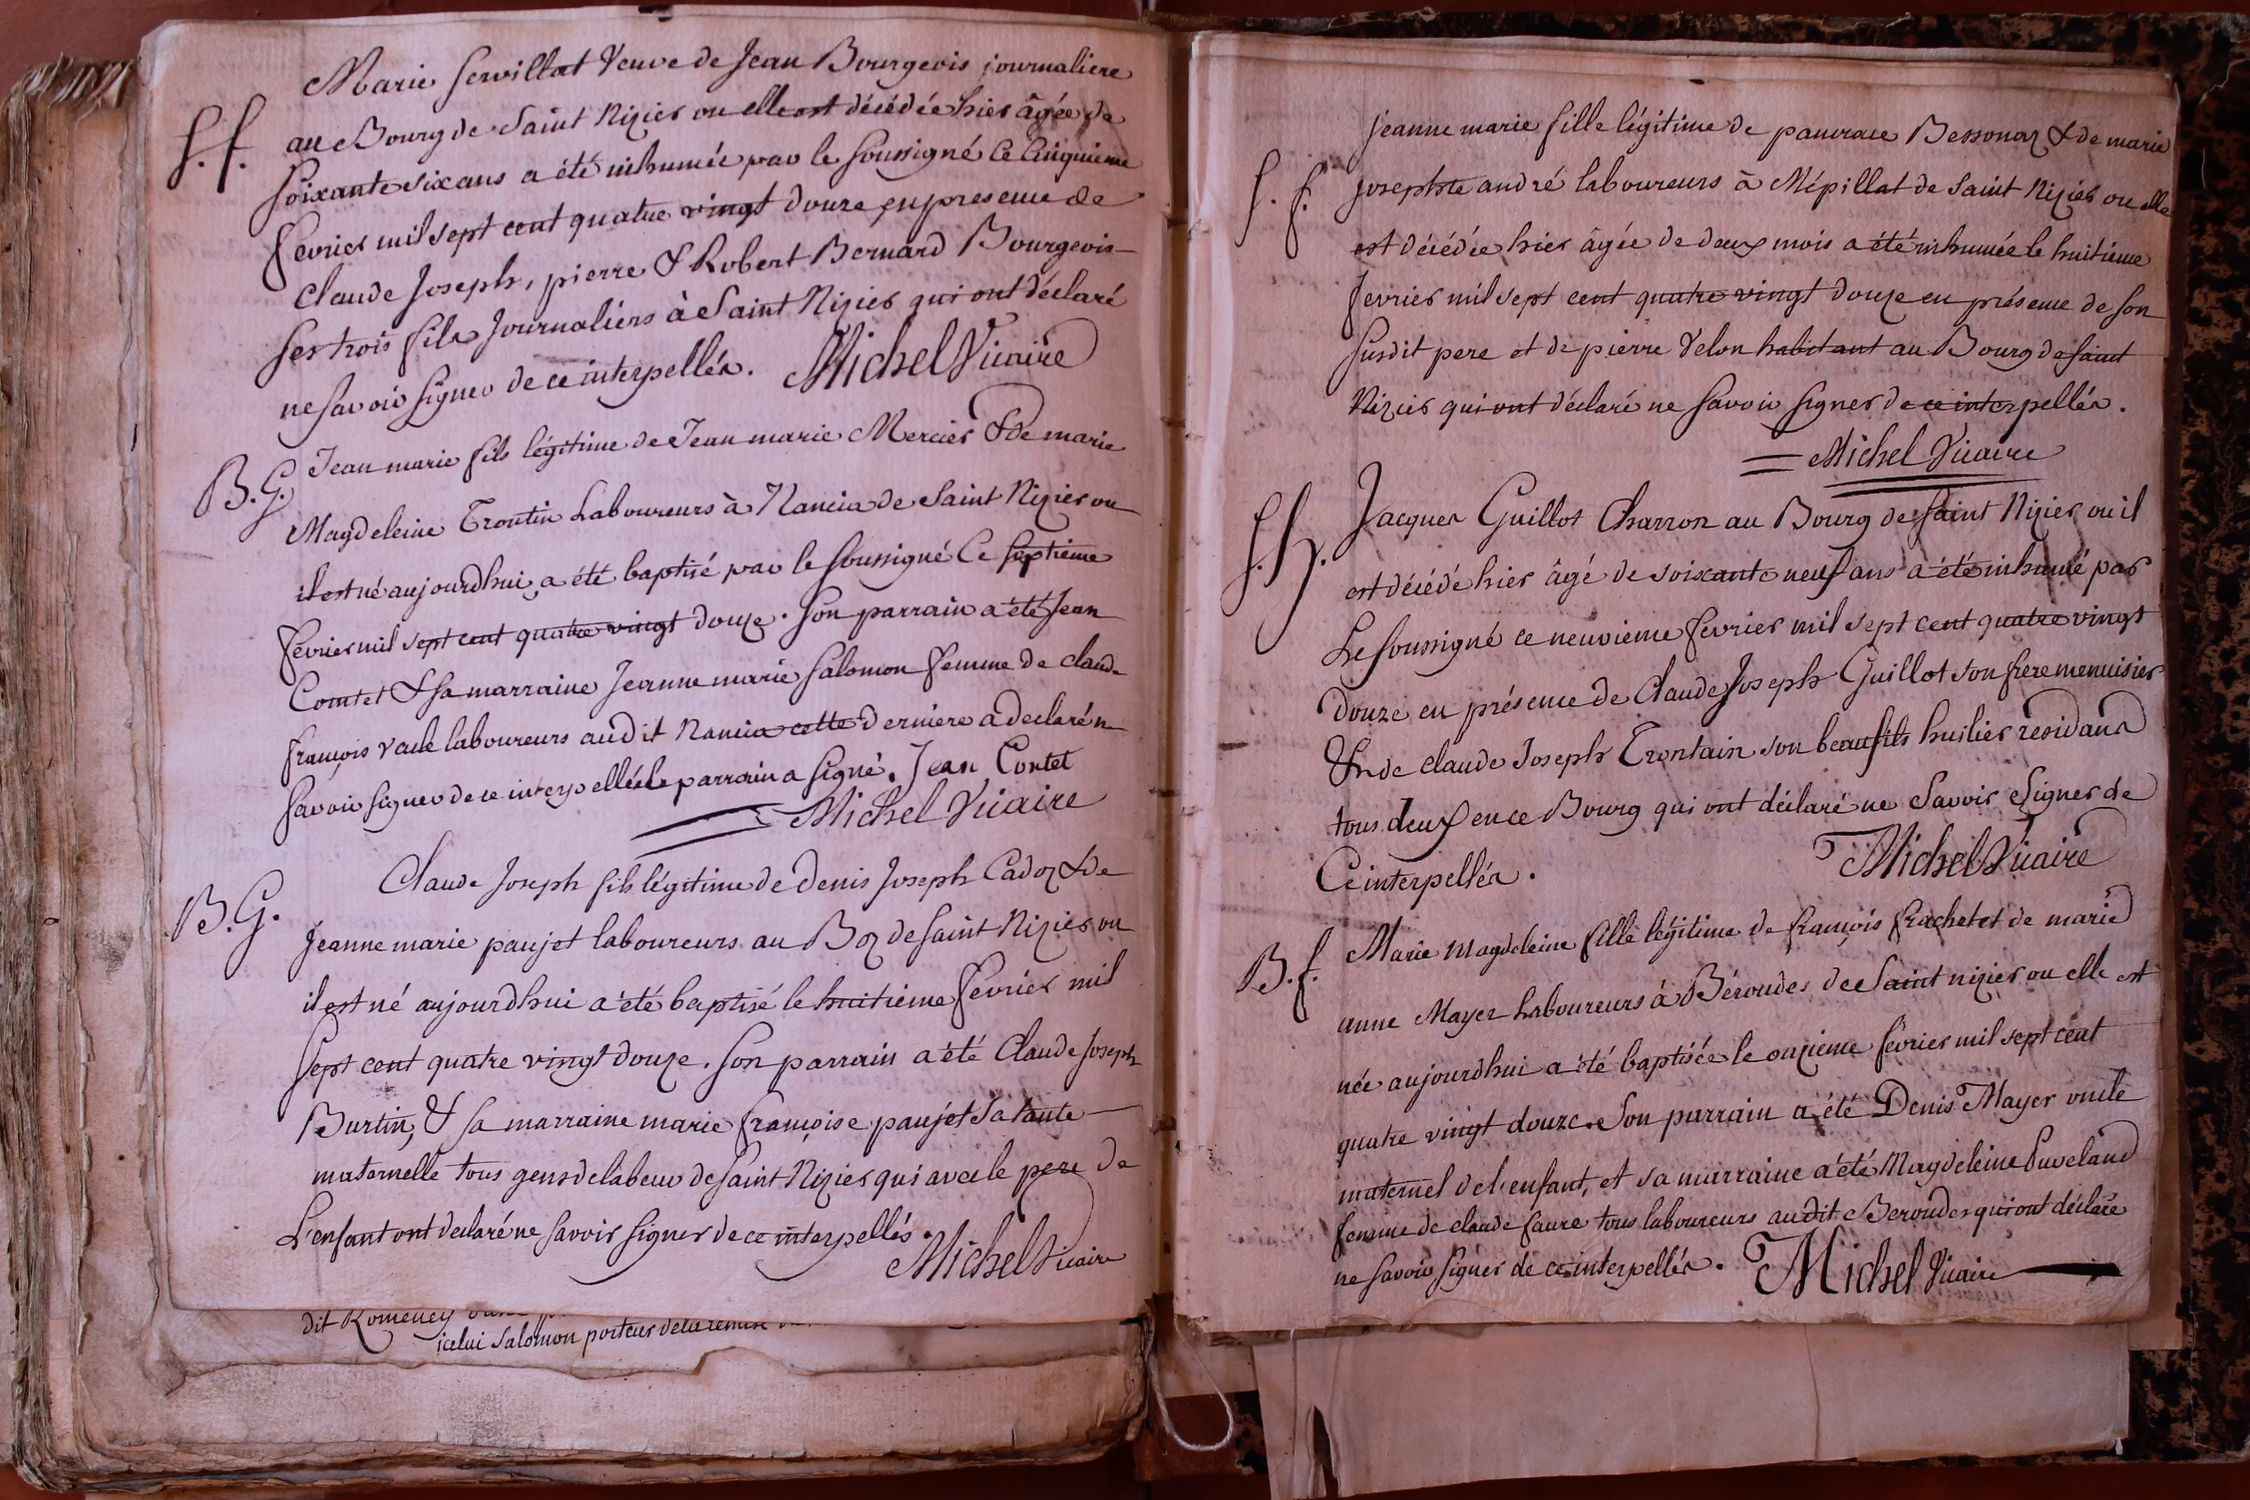 Marie Servillat Veuve de Jean Bourgeois journaliere
S. f. au Bourg de Saint Nizier ou elle est décédée hier âgée de
soixante six ans a été inhumée par le soussigné ce cinquieme
fevrier mil sept cent quatre vingt douze en presence de
Claude Joseph, pierre & Robert Bernard Bourgeois
ses trois fils Journaliers à Saint Nizier qui ont déclaré
ne savoir signer de ce interpellés. Michel Vicaire
B. G. Jean marie fils légitime de Jean marie Mercier & de marie
Magdeleine Trontin Laboureurs à Nancia de Saint Nizier ou
il est né aujourdhui a été baptisé par le soussigné Ce septieme
fevrier mil sept cent quatre vingt douze. Son parrain a été Jean
Comtet & sa marraine Jeanne marie Salomon femme de claude
françois vacle laboureurs audit Nancia cette derniere a declaré n
savoir signer de ce interpellée le parrain a signé. Jean Contet
Michel Vicaire
Claude Joseph fils légitime de Denis Joseph Cadoz & de
B. G. Jeanne marie paujet laboureurs au Boz de Saint Nizier ou
il est né aujourdhui a été baptisé le huitieme fevrier mil
Sept cent quatre vingt douze. Son parrain a été Claude Joseph
Burtin, & sa marraine marie françoise paujet Sa tante
maternelle tous gens de labeur de Saint Nizier qui avec le pere de
L'enfant ont declaré ne savoir signer de ce interpellés.
Michel Vicaire
dit Romeney
icelui Salomon porteur de
Jeanne marie fille légitime de pancrace Bessonaz & de marie
S. f. Josephte andré laboureurs à Mépillat de Saint Nizier ou elle
est décédée hier âgée de deux mois a été inhumée le huitieme
fevrier mil sept cent quatre vingt douze en présence de son
susdit pere et de pierre Velon habitant au Bourg de saint
Nizier qui ont déclaré ne savoir signer de ce interpellés.
Michel Vicaire
S. h. Jacques Guillot Charron au Bourg de Saint Nizier ou il
est décédé hier âgé de soixante neuf ans a été inhumé par
Le soussigné ce neuvieme fevrier mil sept cent quatre vingt
douze en présence de Claude Joseph Guillot son frere menuisier
& de claude Joseph Trontain son beaufils huilier residans
tous deux en ce Bourg qui ont déclaré ne savoir signer de
Ce interpellés. Michel Vicaire
B. f. Marie Magdeleine fille légitime de françois frachet et de marie
anne Mayer Laboureurs à Béroudes de Saint nizier ou elle est
née aujourdhui a été baptisée le onzieme fevrier mil sept cent
quatre vingt douze. Son parrain a été Denis Mayer oncle
maternel de l'enfant, et sa marraine a été Magdeleine Puveland
femme de claude faure tous laboureurs audit Beroudes qui ont déclaré
ne savoir signer de ce interpellés. Michel Vicaire